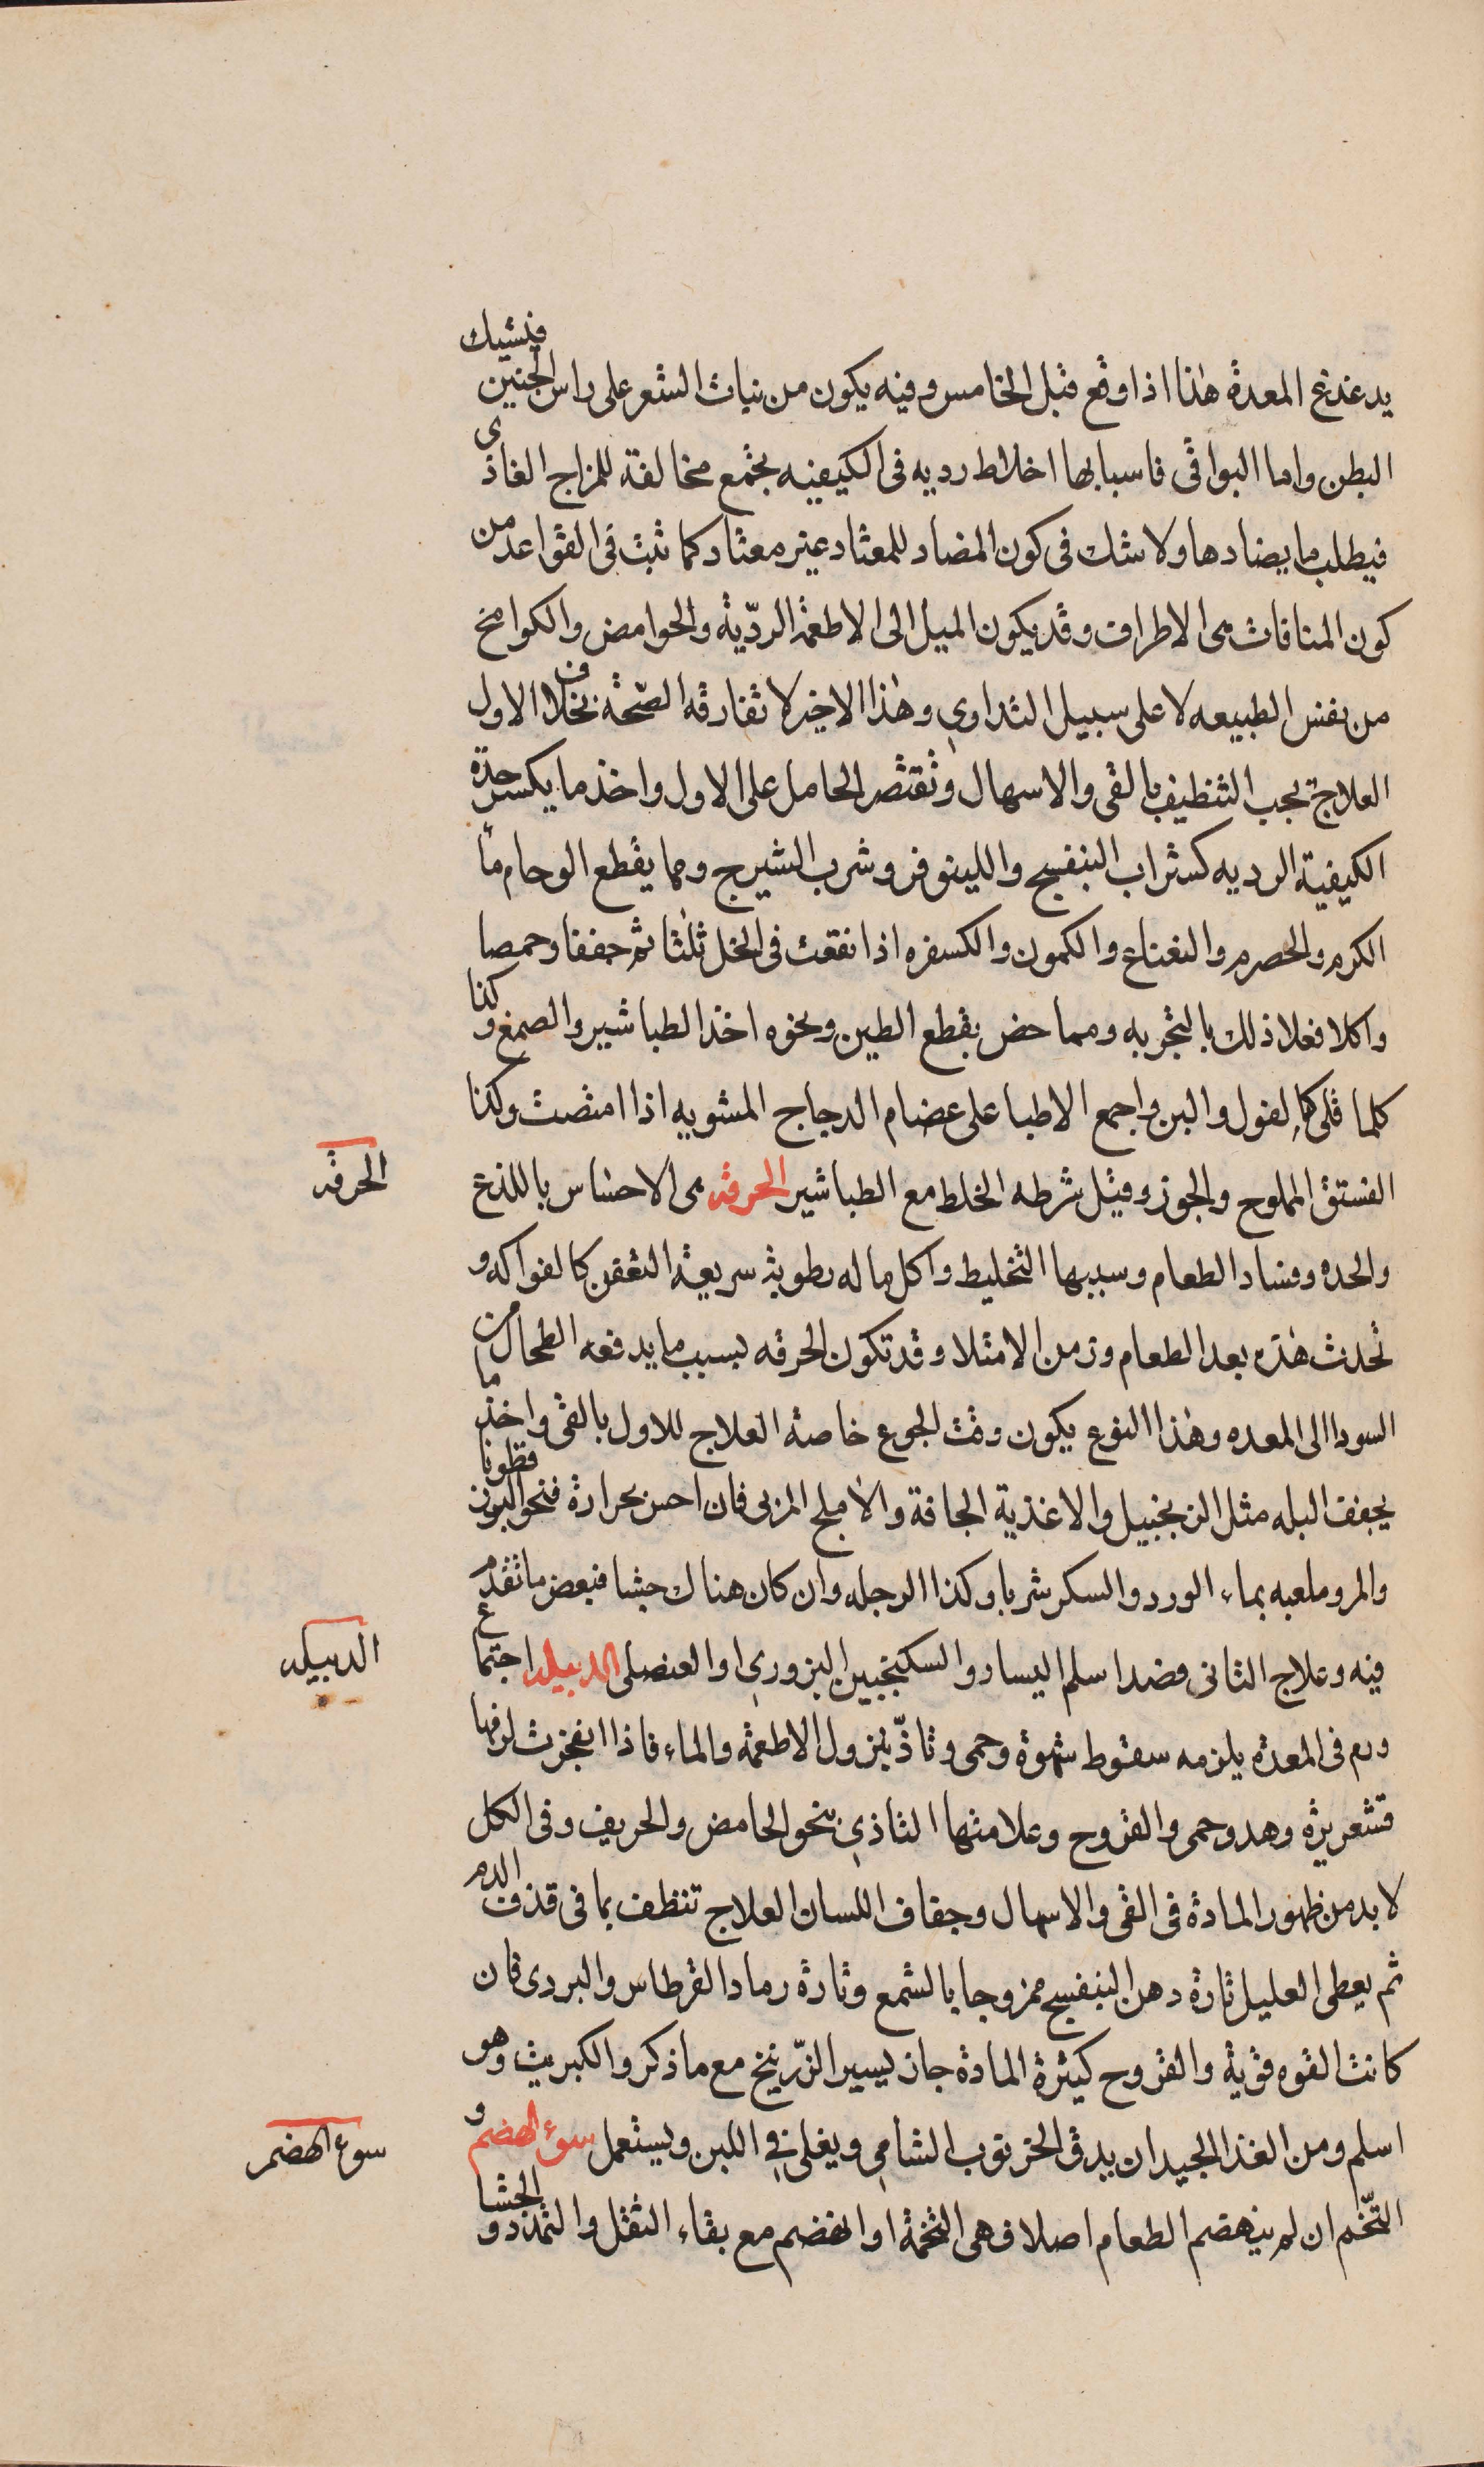 يدغدغ المعدة هذا اذا وقع قبل الخامس وفيه يكون من نبات الشعر على راس الجنين فيشيك
البطن واما البواقى فاسبابها اخلاط رديه فى الكيفيه بجتمع مخالفة للمزاج الغاذى
فيطلب ما يضادها ولا شك فى كون المضاد للمعتاد غير معتاد كما ثبت فى القواعد من
كون المنافات مى الاطراف وقد يكون الميل الى الاطعمة الرديّة والحوامض والكوامخ
من نفس الطبيعه لا على سبيل التداوي وهذا الاخير لا تفارقه الصّحة بخلاف الاول
العلاج يجب التنظيف بالقى والاسهال وتقتصر الحامل على الاول واخذ ما يكسر حدة
الكيفية الرديه كشراب البنفسج واللينوفر وشرب الشيرج ومما يقطع الوحام ماً
الكرم والحصرم والنعناع والكمون والكسفره اذا نقعت فى الخل ثلثا ثم جففا وحمصا
واكلا فعلا ذلك بالتجربه ومما خص بقطع الطين ونحوه اخذ الطباشير والصمغ وكذا
كلما قلى كالفول والبن واجمع الاطبا على عضام الدجاج المشويه اذا امتصت وكذا
الفستق المملوح والجوز وقيل شرطه الخلط مع الطباشير الحرقة مى الاحساس باللذع
والحده وفساد الطعام وسببها التخليط واكل ما له رطوبة سريعة التعفن كالفواكه و
تحدث هذه بعد الطعام وزمن الامتلا وقد تكون الحرقه بسبب ما يدفعه الطحال من
السودا الى المعده وهذا النوع يكون وقت الجوع خاصة العلاج للاول بالقى واخذ ما
يجفف البله مثل الزنجبيل والاغذية الجافة والاملج المربى فان احس بحرارة فنحو البزر قطونا
والمر وملعبه بماء الورد والسكر شربا وكذا الرجله وان كان هناك جشا فبعض ما تقدم
فيه وعلاج الثانى فصد اسلم اليسار والسكنجبين البزوري او العنصلى الدبيلة اجتماع
ورم فى المعدة يلزمه سقوط شهوة وحمى وتاذّ بنزول الاطعمة والماء فاذا انفجرت لزمها
قشعريرة وهدو حمى والقروح وعلامتها التاذي بنحو الحامض والحريف وفى الكل
لا بد من ظهور المادة فى القى والاسهال وجفاف اللسان العلاج تنظف بما فى قذف الدم
ثم يعطى العليل تارة دهن البنفسج ممزوجا بالشمع وتارة رماد القرطاس والبردى فان
كانت القوه قوية والقروح كثيرة المادة جاز يسير الزّرنيخ مع ما ذكر والكبريت وهو
اسلم ومن الغذا الجيد ان يدق الخرنوب الشامي ويغلى في اللبن ويستعمل سوء الهضم و
التّخم ان لم ينهضم الطعام اصلا فهى التخمة او انهضم مع بقاء الثقل والتمدد والجشا
الحرقه
الدبيله
سوء الهضم